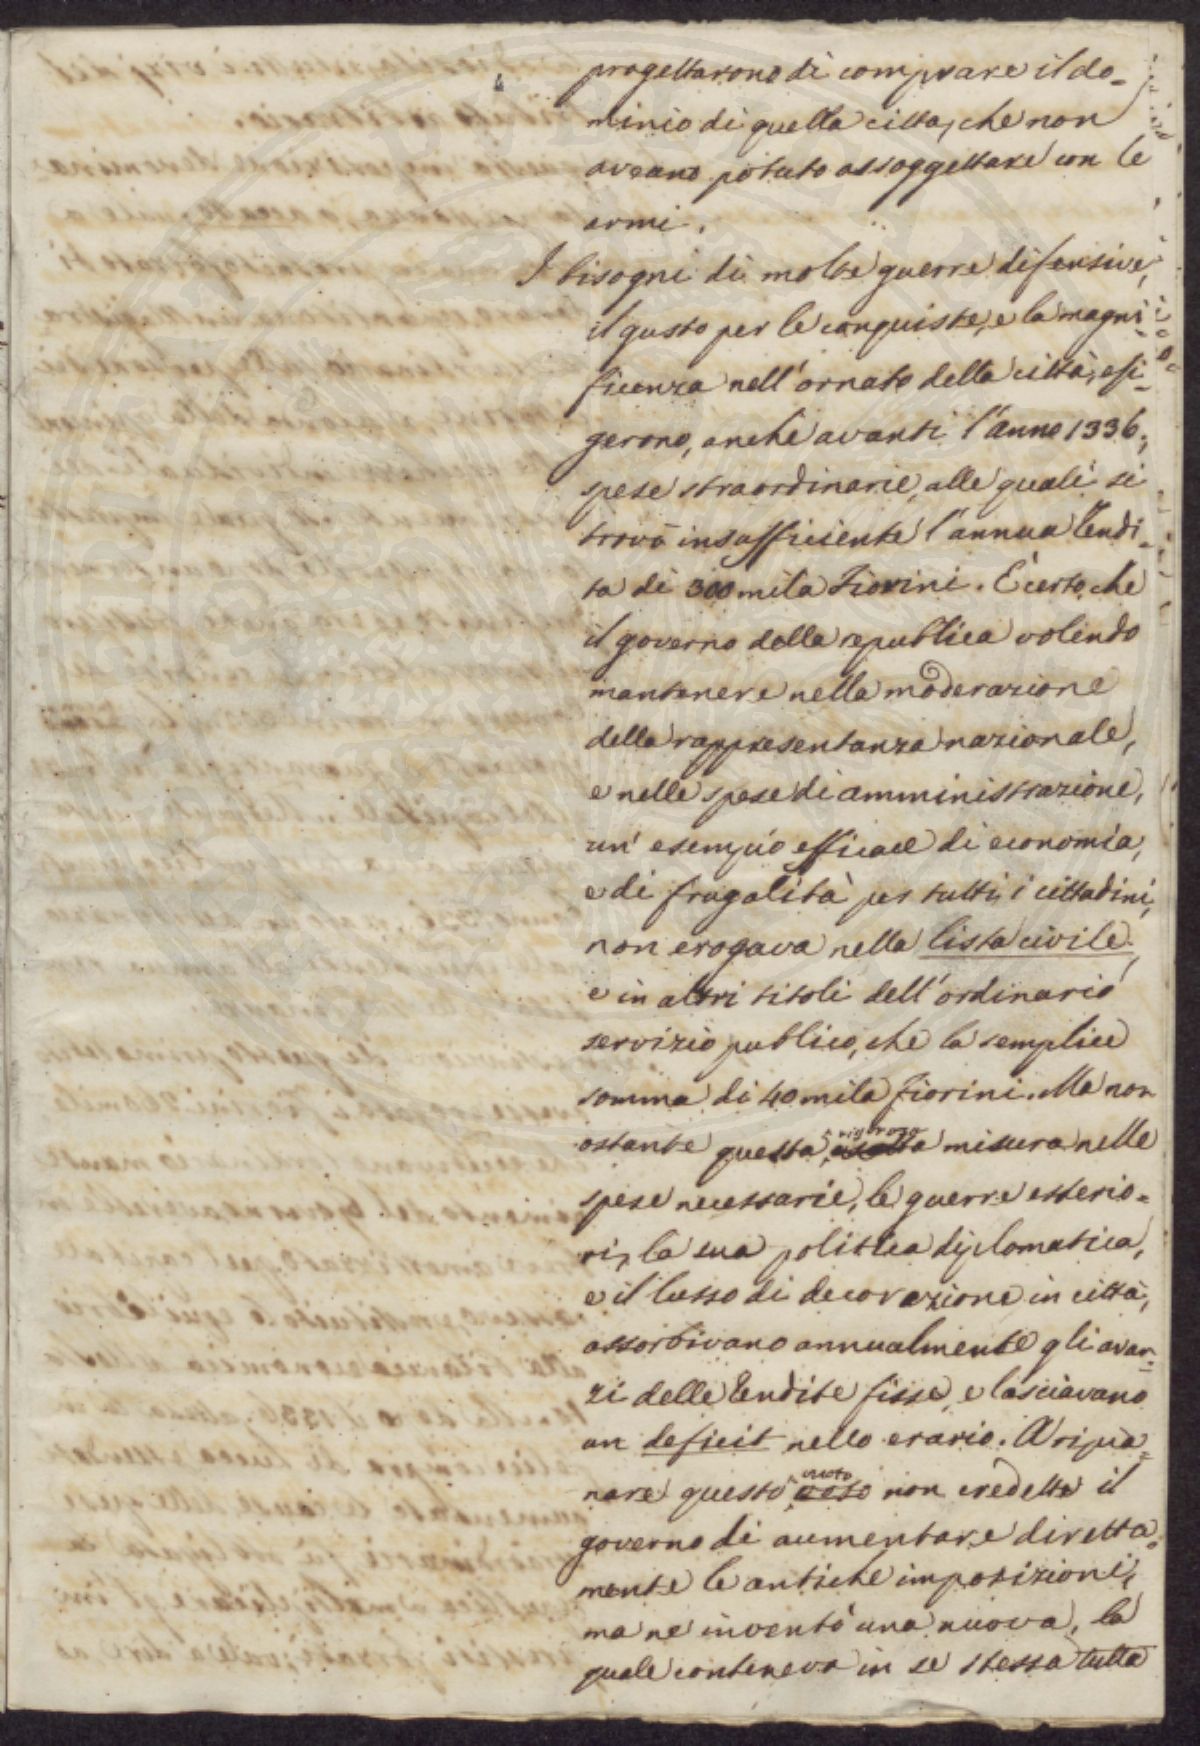 progettarono di comprare il do=
minio di quella citta, che non
aveano potuto assoggettare con le
armi.
I bisogni di molte guerre difensive,
il gusto per le conquiste, e la magni=
ficenza nell'ornato della città, esi=
gerono, anche avanti l'anno 1336.,
spese straordinarie, alle quali si
trovò insufficiente l'annua rendi=
ta di 300 mila Fiorini. È certo, che
il governo della republica volendo
mantenere nella moderazione
della rappresentanza nazionale,
e nelle spese di amministrazione,
un' esempio efficace di economia,
e di frugalità per tutti i cittadini,
non erogava nella lista civile,
e in altri titoli dell'ordinario
servizio publico, che la semplice
somma di 40 mila fiorini. Ma non
ostante questa rigorosa misura nelle
spese necessarie, le guerre esterio=
ri, la sua politica diplomatica,
e il lusso di decorazione in città,
assorbivano annualmente gli avan=
zi delle rendite fisse, e lasciavano
un deficit nello erario. A ripia=
nare questo vuoto non credette il
governo di aumentare diretta=
mente le antiche imposizioni,
ma ne inventò una nuova, la
quale conteneva in se stessa tutta